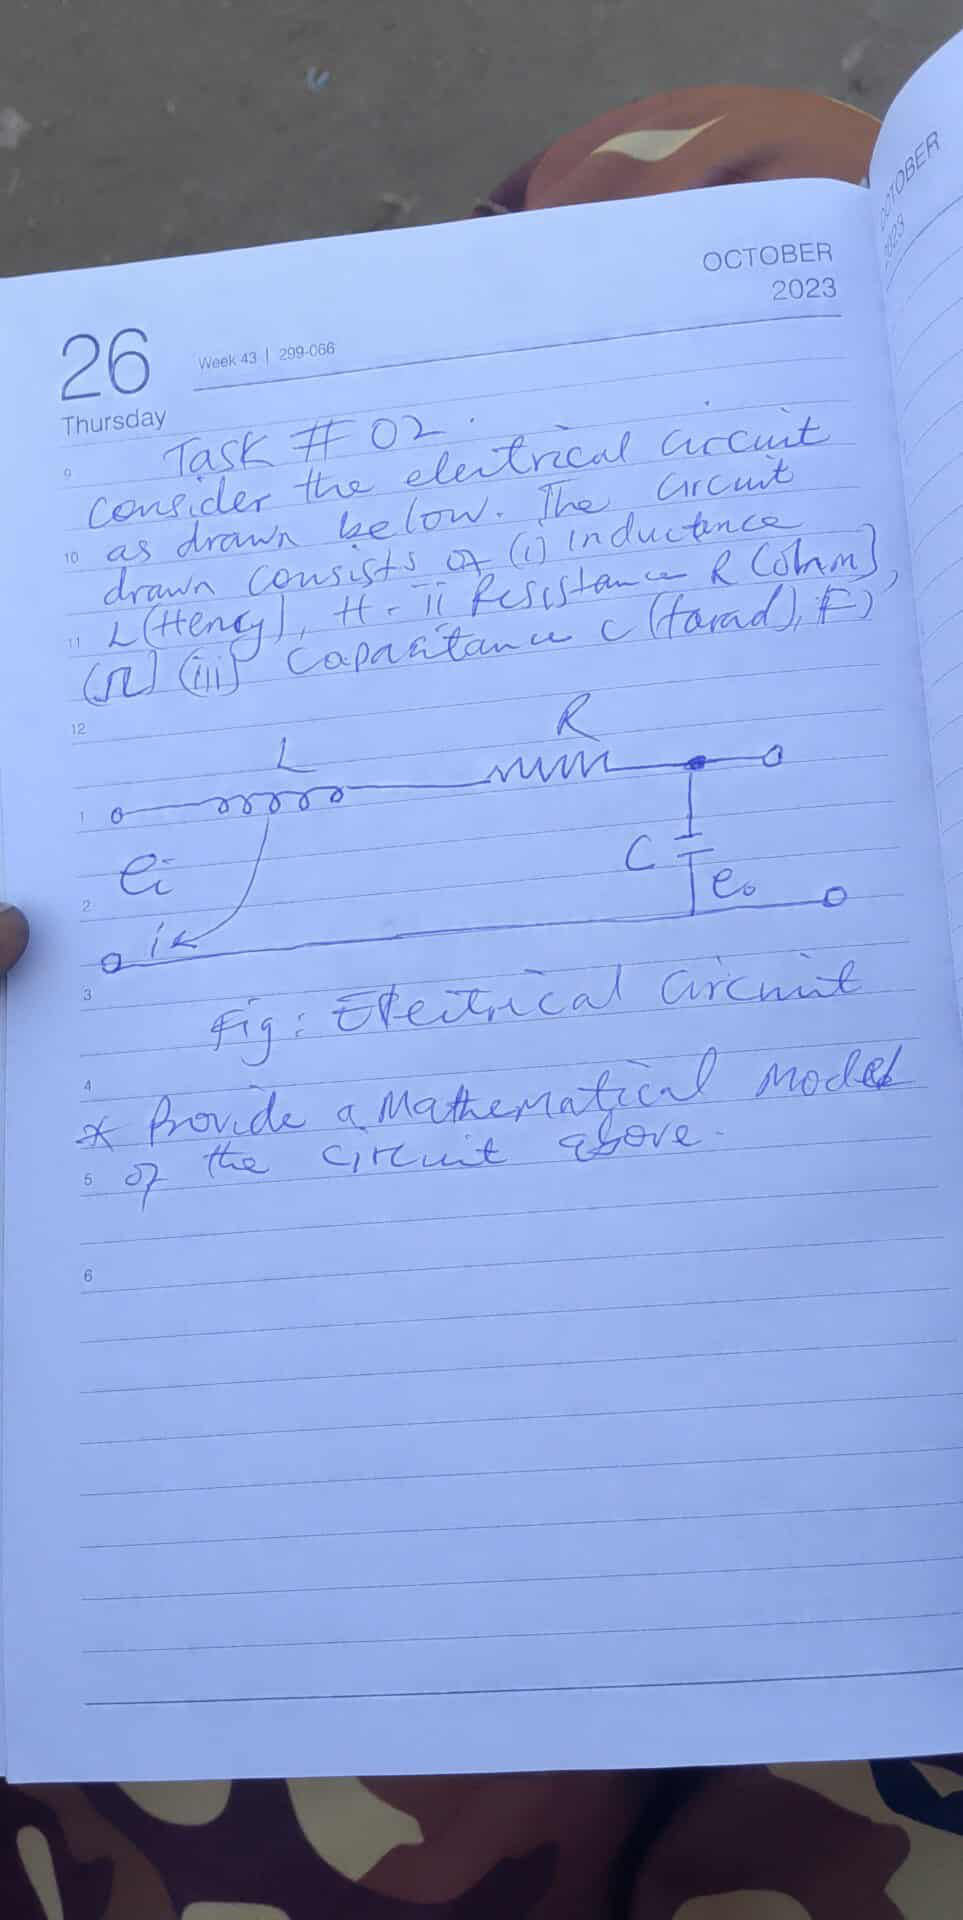 OCTOBER
2023
OCTOBER
2023
26
Week 43 | 299-066
Thursday
Task # 02.
9
consider the electrical circuit
10 as drawn below. The circuit
drawn consists of (i) inductance
11 L (Henry), H - ii Resistance R (ohm),
(Ω) (iii) Capacitance C (farad), F)
12
L
R
1
ei
C
eo
2
i
3
Fig: Electrical circuit
4
* Provide a Mathematical Model
5 of the circuit above.
6